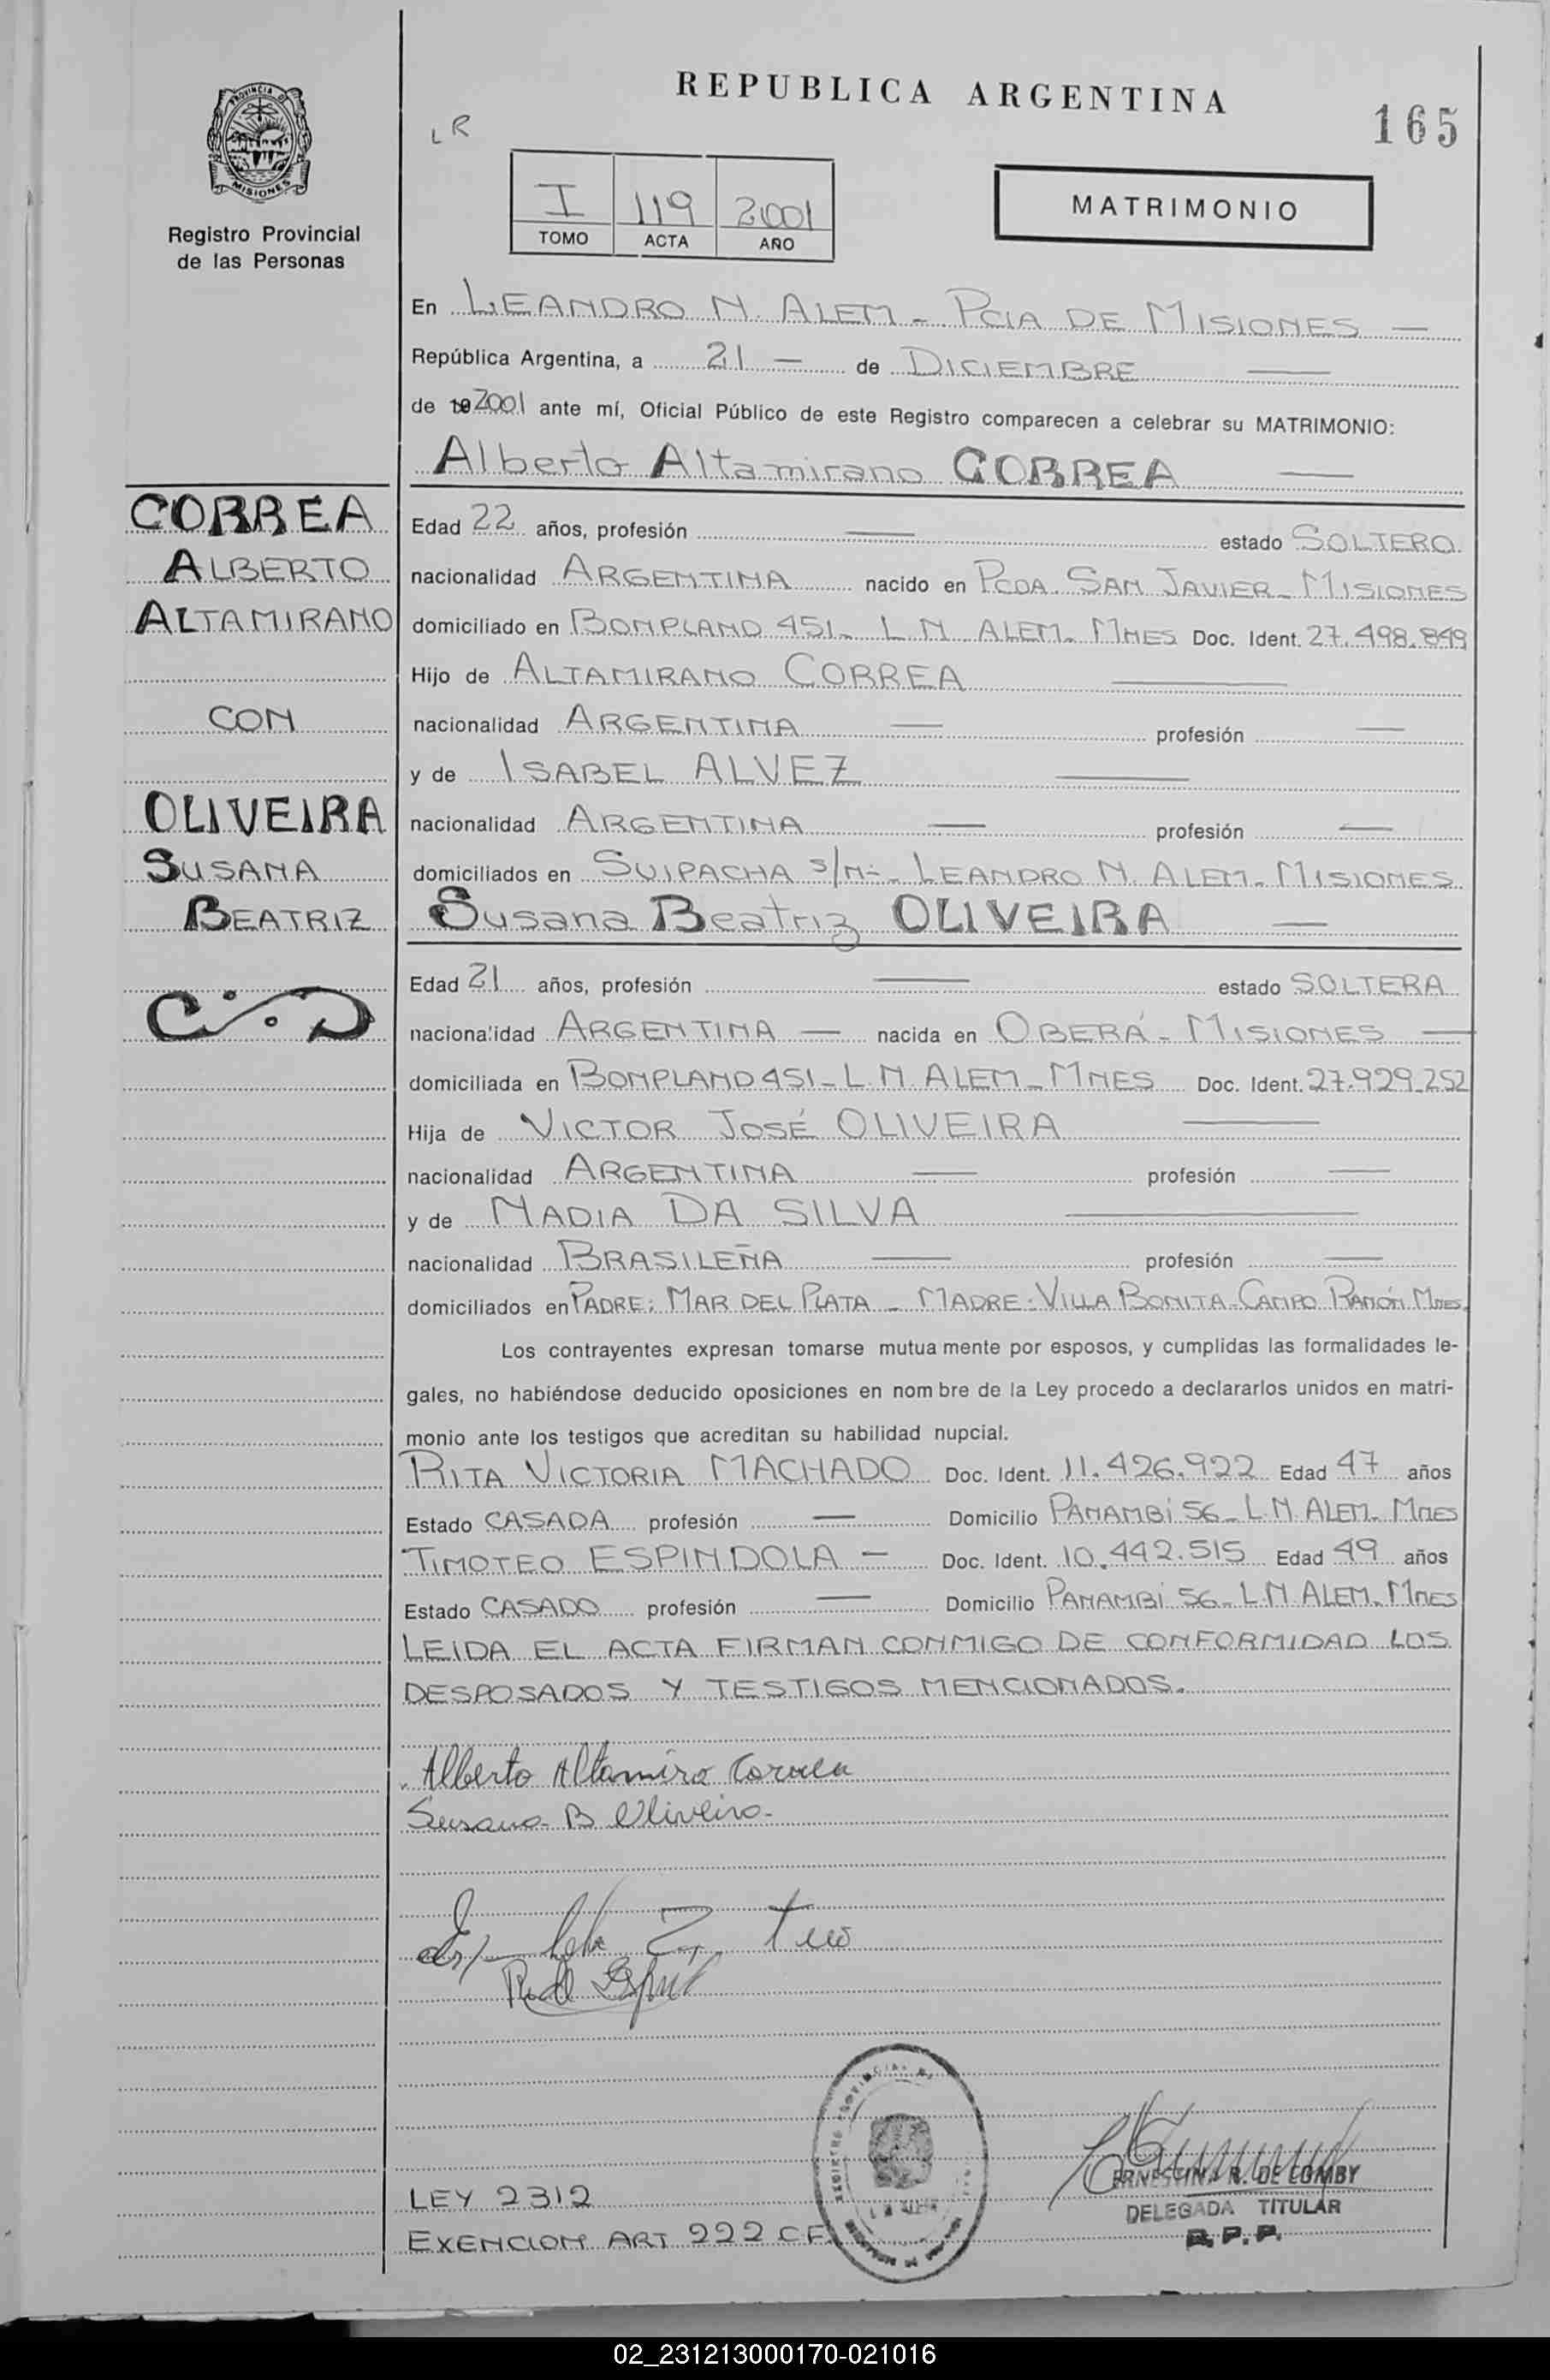 REPUBLICA ARGENTINA
165
LR
PROVINCIA DE
MISIONES
Registro Provincial
de las Personas
I 119 2001
TOMO ACTA AÑO
MATRIMONIO
En LEANDRO N. ALEM - PCIA DE MISIONES —
República Argentina, a 21 — de DICIEMBRE —
de 19 2001 ante mí, Oficial Público de este Registro comparecen a celebrar su MATRIMONIO:
Alberto Altamirano CORREA —
CORREA
ALBERTO
ALTAMIRANO
CON
OLIVEIRA
SUSANA
BEATRIZ
Edad 22 años, profesión — estado SOLTERO
nacionalidad ARGENTINA nacido en PCDA. SAN JAVIER - MISIONES
domiciliado en BONPLAND 451 - L.N. ALEM - MNES Doc. Ident. 27.498.849
Hijo de ALTAMIRANO CORREA —
nacionalidad ARGENTINA — profesión —
y de ISABEL ALVEZ —
nacionalidad ARGENTINA — profesión —
domiciliados en SUIPACHA S/N - LEANDRO N. ALEM - MISIONES
Susana Beatriz OLIVEIRA —
Edad 21 años, profesión — estado SOLTERA
nacionalidad ARGENTINA — nacida en OBERÁ - MISIONES —
domiciliada en BONPLAND 451 - L.N. ALEM - MNES Doc. Ident. 27.929.252
Hija de VICTOR JOSÉ OLIVEIRA —
nacionalidad ARGENTINA — profesión —
y de NADIA DA SILVA —
nacionalidad BRASILEÑA — profesión —
domiciliados en PADRE: MAR DEL PLATA - MADRE: VILLA BONITA - CAMPO RAMÓN MNES.
Los contrayentes expresan tomarse mutuamente por esposos, y cumplidas las formalidades le-
gales, no habiéndose deducido oposiciones en nombre de la Ley procedo a declararlos unidos en matri-
monio ante los testigos que acreditan su habilidad nupcial.
RITA VICTORIA MACHADO Doc. Ident. 11.426.922 Edad 47 años
Estado CASADA profesión — Domicilio PANAMBÍ 56 - L.N. ALEM - MNES
TIMOTEO ESPINDOLA — Doc. Ident. 10.442.515 Edad 49 años
Estado CASADO profesión — Domicilio PANAMBÍ 56 - L.N. ALEM. MNES
LEIDA EL ACTA FIRMAN CONMIGO DE CONFORMIDAD LOS
DESPOSADOS Y TESTIGOS MENCIONADOS.
Alberto Altamiro Correa
Susana B Oliveira
ERNESTINA R. DE LOMBY
DELEGADA TITULAR
R.P.P.
LEY 2312
EXENCION ART 222 CF
02_231213000170-021016